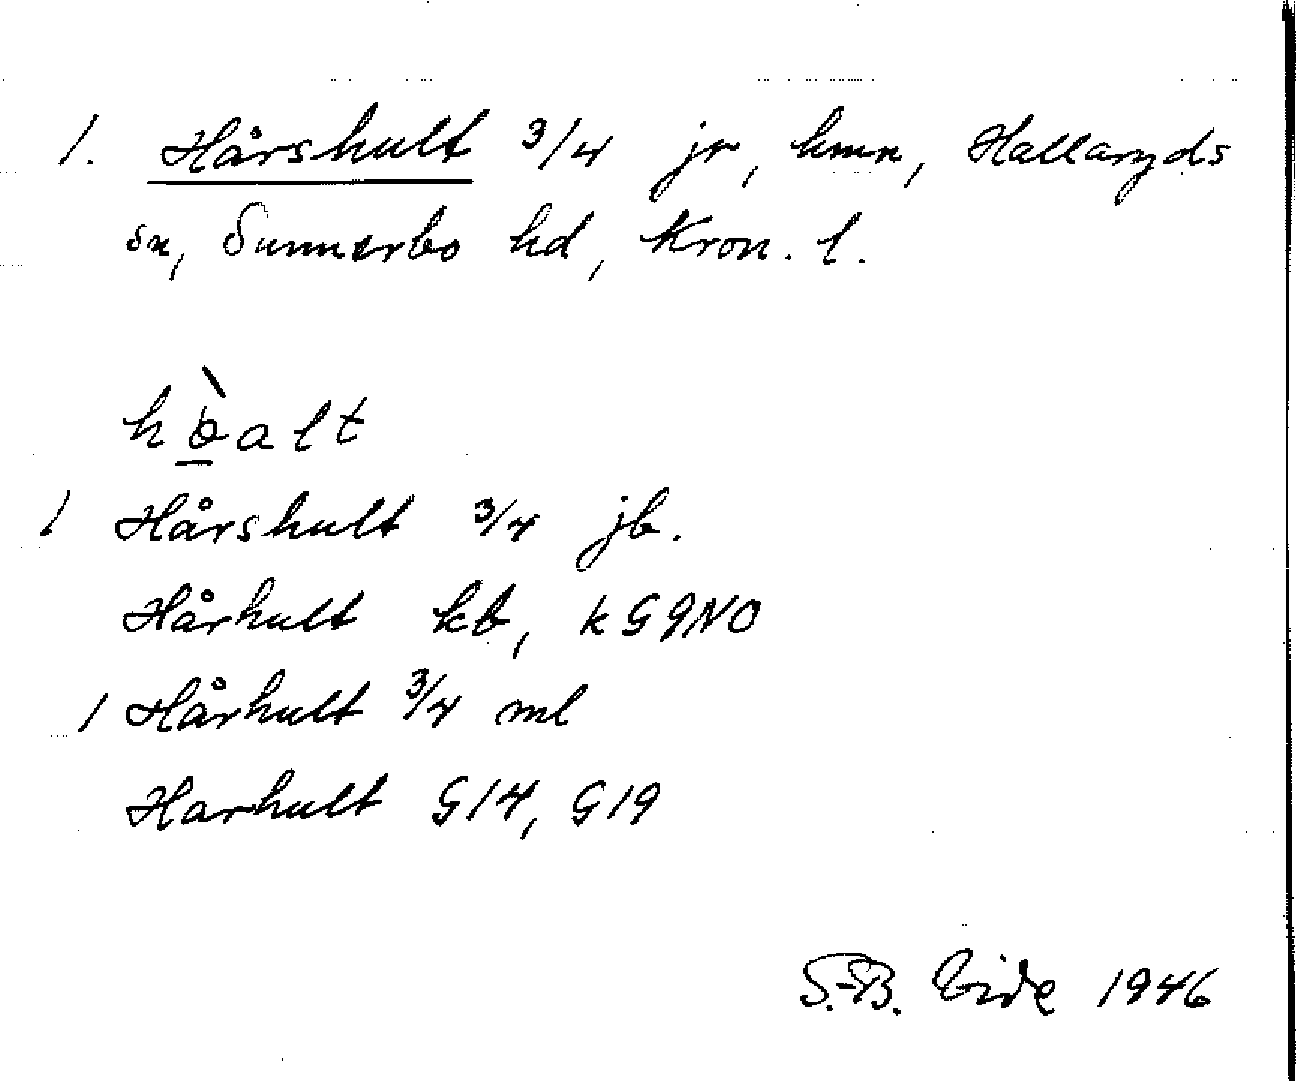 1. Hårshult 3/4 jr, hmn, Hallaryds
sn, Sunnerbo hd, Kron. l.
hòalt
1 Hårshult 3/4 jb.
Hårhult kb, kG9NO
1 Hårhult 3/4 ml
Harhult G14, G19
S.-B. Eide 1946